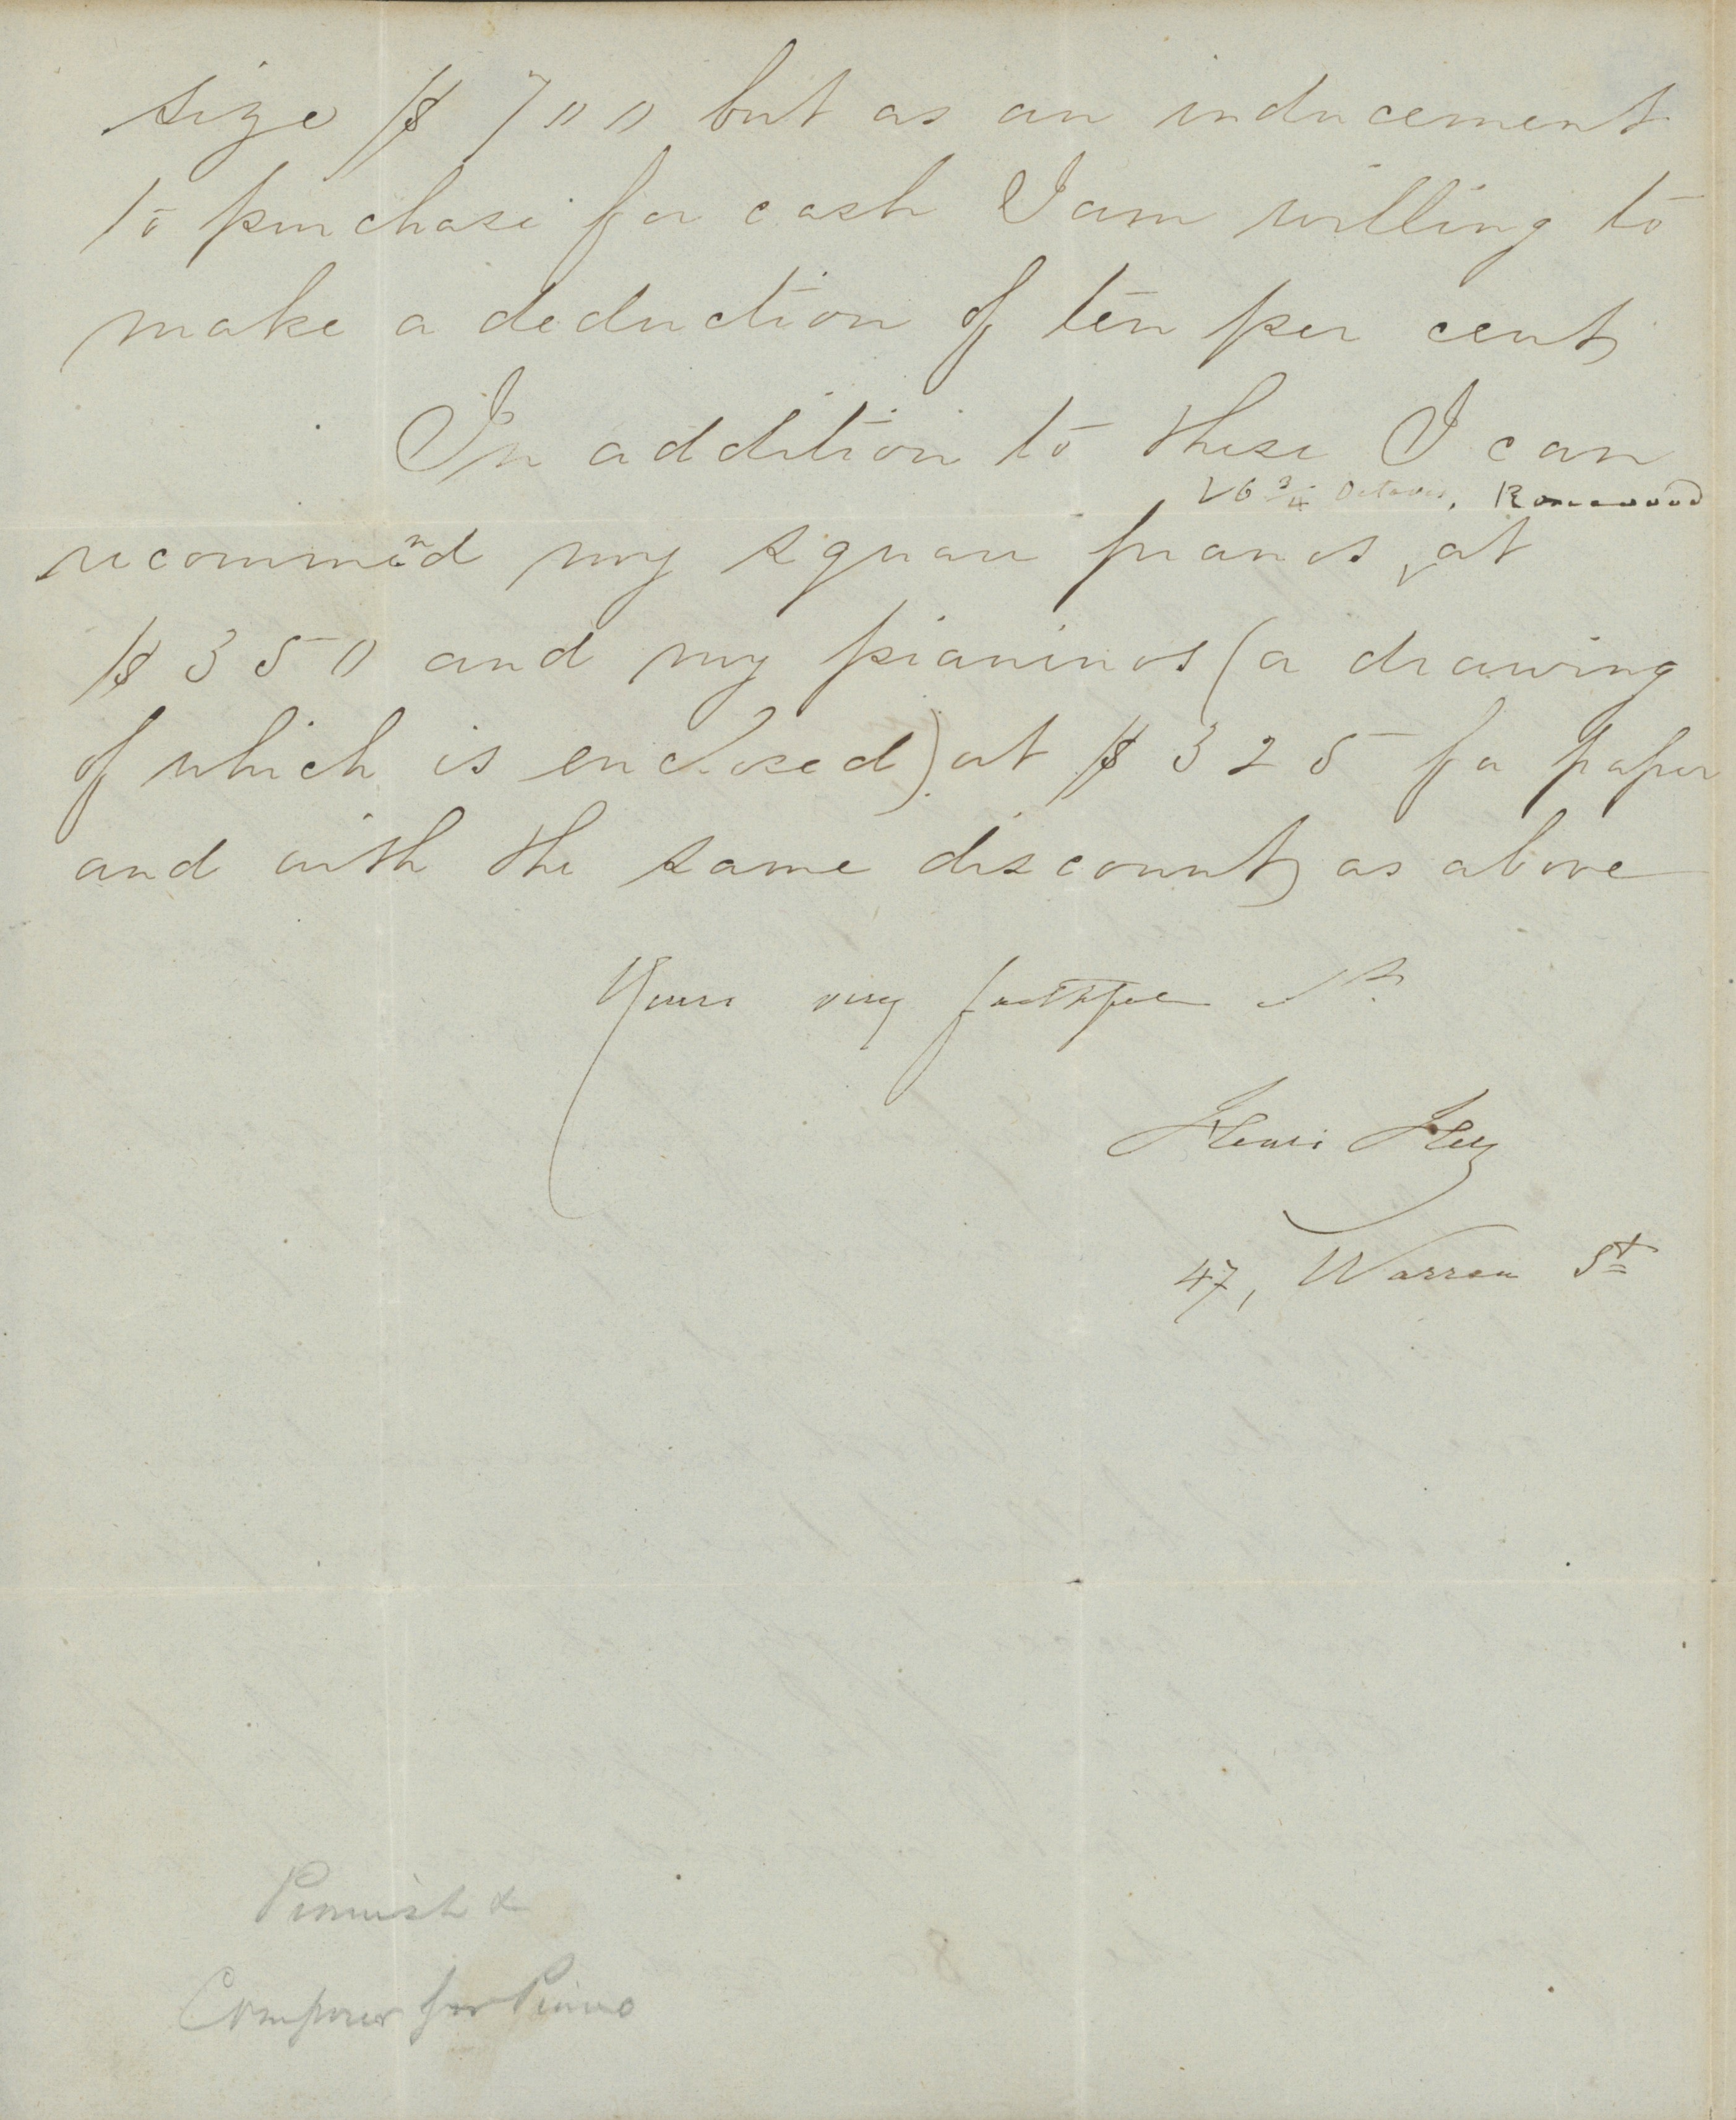 size $ 700 but as an inducement
to purchase for cash I am willing to
make a deduction of ten per cent
In addition to these I can
6 3/4 Octaves, Rosewood
recommend my square pianos at
$ 350 and my pianinos (a drawing
of which is enclosed) at $ 325 for paper
and with the same discount as above
Yours very faithful
Henri Herz
47, Warren St
Pianist &
Composer for Piano